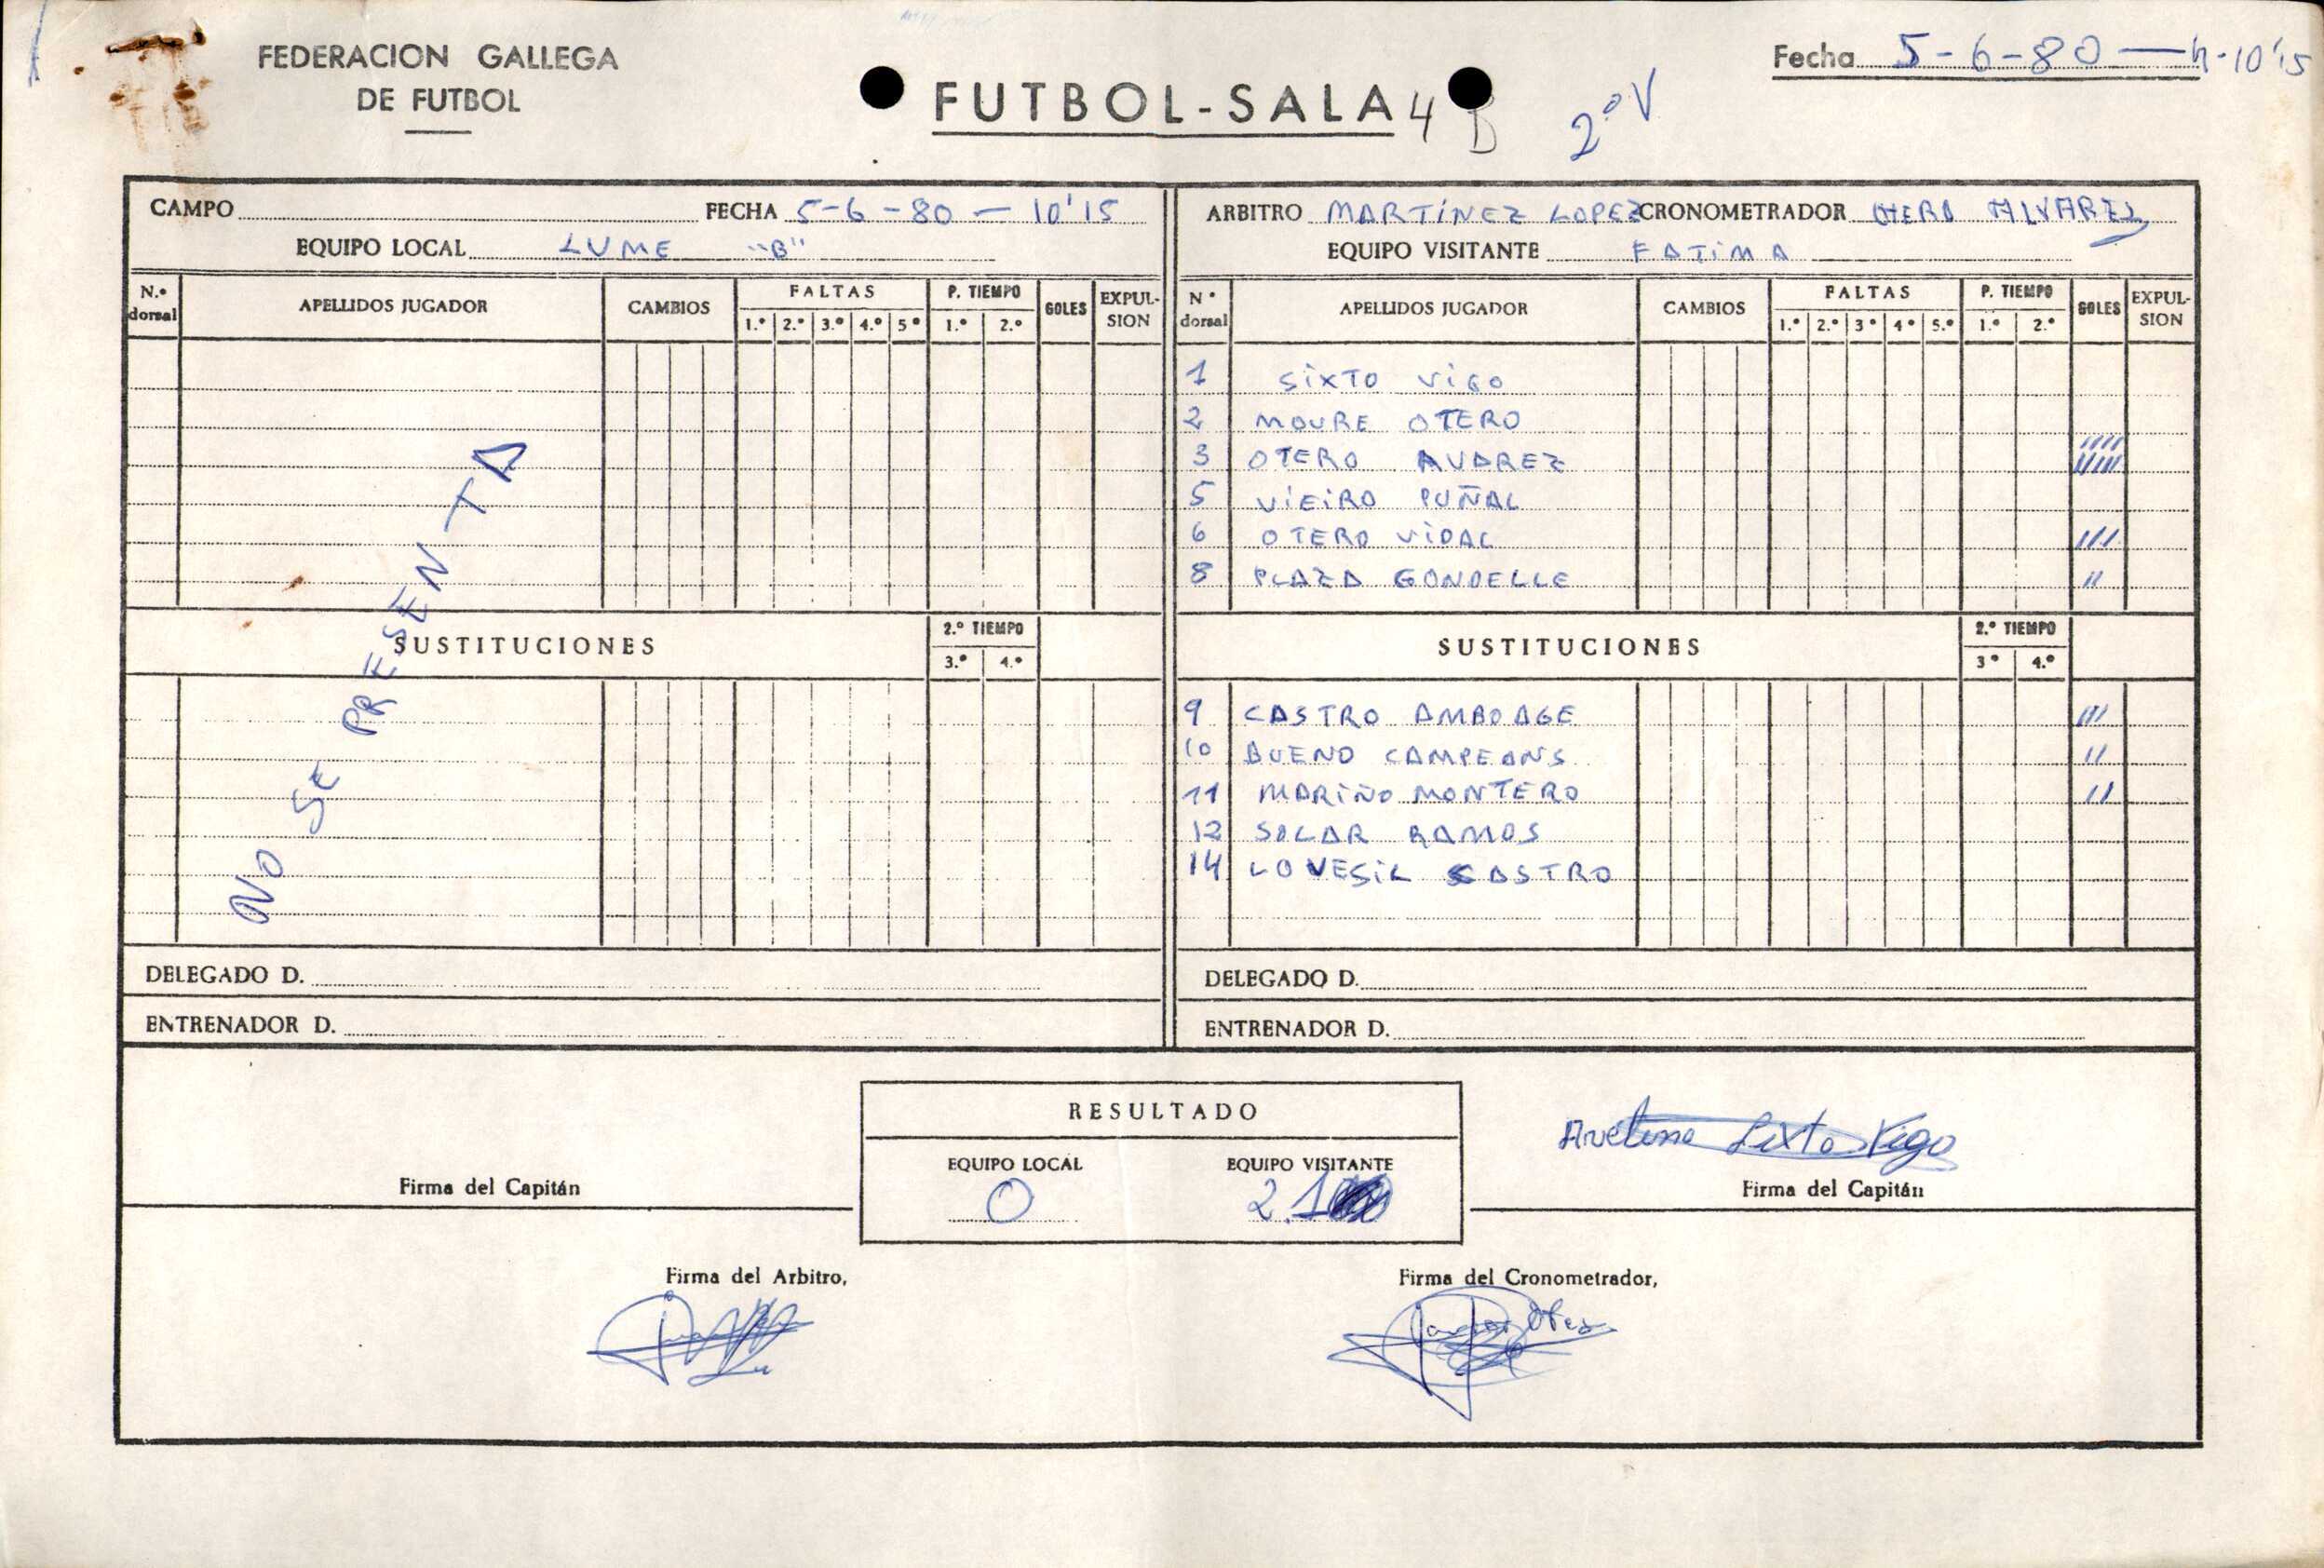 FEDERACION GALLEGA
DE FUTBOL
FUTBOL-SALA 4 B 2º V
Fecha 5-6-80 — H-10'15
CAMPO FECHA 5-6-80 — 10'15
EQUIPO LOCAL LUME "B"
N.º dorsal APELLIDOS JUGADOR CAMBIOS FALTAS 1.º 2.º 3.º 4.º 5º P. TIEMPO 1.º 2.º GOLES EXPULSION
NO SE PRESENTA
SUSTITUCIONES 2.º TIEMPO 3.º 4.º
DELEGADO D.
ENTRENADOR D.
ARBITRO MARTÍNEZ LOPEZ CRONOMETRADOR OTERO ALVAREZ
EQUIPO VISITANTE FATIMA
Nº dorsal APELLIDOS JUGADOR CAMBIOS FALTAS 1.º 2.º 3º 4º 5.º P. TIEMPO 1.º 2.º GOLES EXPULSION
1 SIXTO VIGO
2 MOURE OTERO
3 OTERO ALVAREZ
5 VIEIRO PUÑAL
6 OTERO VIDAL III
8 PLAZA GONDELLE II
SUSTITUCIONES 2.º TIEMPO 3º 4.º
9 CASTRO AMBOAGE III
10 BUENO CAMPEANS II
11 MARIÑO MONTERO II
12 SOLAR RAMOS
14 LOVESIL CASTRO
DELEGADO D.
ENTRENADOR D.
RESULTADO
EQUIPO LOCAL EQUIPO VISITANTE
0 21
Firma del Capitán
Avelino Sixto Vigo
Firma del Capitán
Firma del Arbitro,
Firma del Cronometrador,